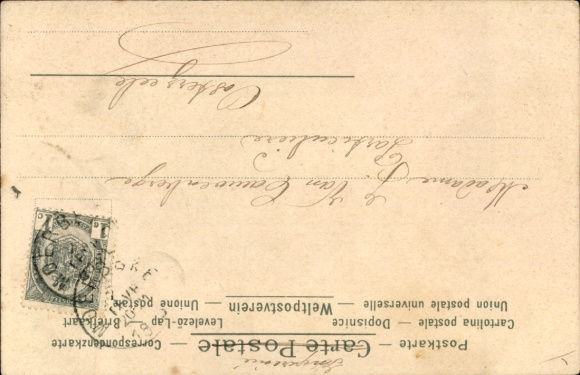 Carte Postale
Postkarte — Correspondenzkarte
Cartolina postale — Dopisnice — Levelező-Lap — Briefkaart
Union postale universelle — Weltpostverein — Unione postale
Madame J. Van Cauwenberge
Particulière
Oosterzeele
1 c